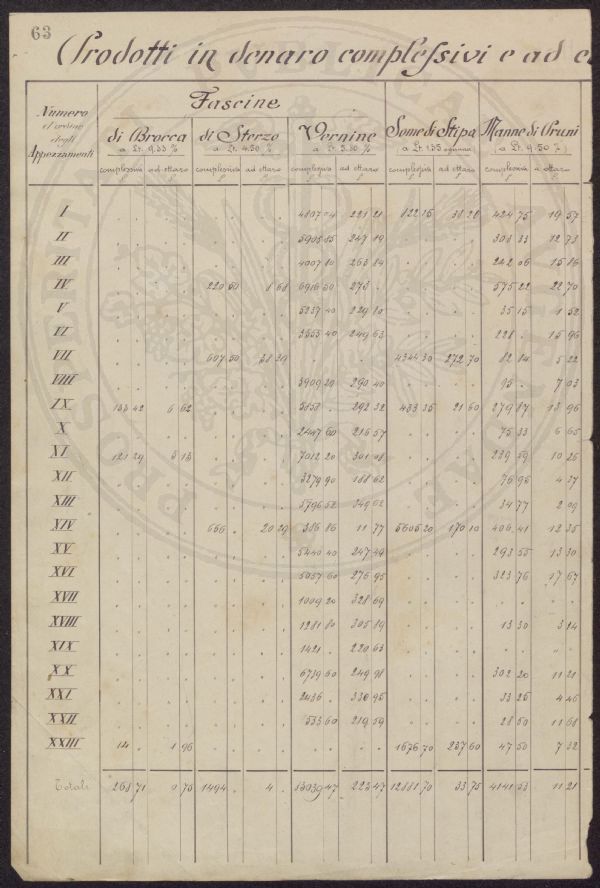 63
Prodotti in denaro complessivi e ad e
Numero d'ordine degli Appezzamenti
Fascine
di Brocca di Sterzo Vernine Some di Stipa Manne di Pruni
a Lt. 9.33 % a Lt. 4.50 % a Lt. 3.30 % a Lt. 1.35 (a Lt. 9.50 %)
complessivi ad ettaro complessivi ad ettaro complessivi ad ettaro complessivi ad ettaro complessivi a ettaro
I 4807 04 223 21 822 15 38 28 424 75 19 57
II 5905 85 247 19 303 33 12 73
III 4007 80 263 84 242 06 15 86
IV 220 50 8 68 6916 50 273 . 575 22 22 70
V 5237 40 229 80 35 15 1 52
VI 3553 40 249 63 228 . 15 96
VII 607 50 38 29 4344 30 272 70 82 84 5 22
VIII 3909 20 290 40 95 . 7 03
IX 133 42 6 62 5858 . 292 32 433 35 21 60 279 87 13 96
X 2447 60 216 57 75 33 6 65
XI 121 29 5 13 7012 20 301 08 239 59 10 26
XII 3279 90 188 62 76 96 4 37
XIII 5796 52 349 02 34 77 2 09
XIV 666 . 20 29 386 86 11 77 5605 20 170 10 406 41 12 35
XV 5440 40 247 49 293 55 13 30
XVI 5057 60 276 95 323 76 17 67
XVII 1009 20 328 69
XVIII 1281 80 305 89 13 30 3 14
XIX 1421 . 220 63
XX 6739 60 249 98 302 20 11 21
XXI 2436 . 330 96 33 25 4 46
XXII 533 60 219 59 28 50 11 68
XXIII 14 . 1 96 1676 70 237 60 47 50 7 32
Totali 268 71 0 75 1494 . 4 . 83039 47 223 47 12881 70 33 75 4141 53 11 21